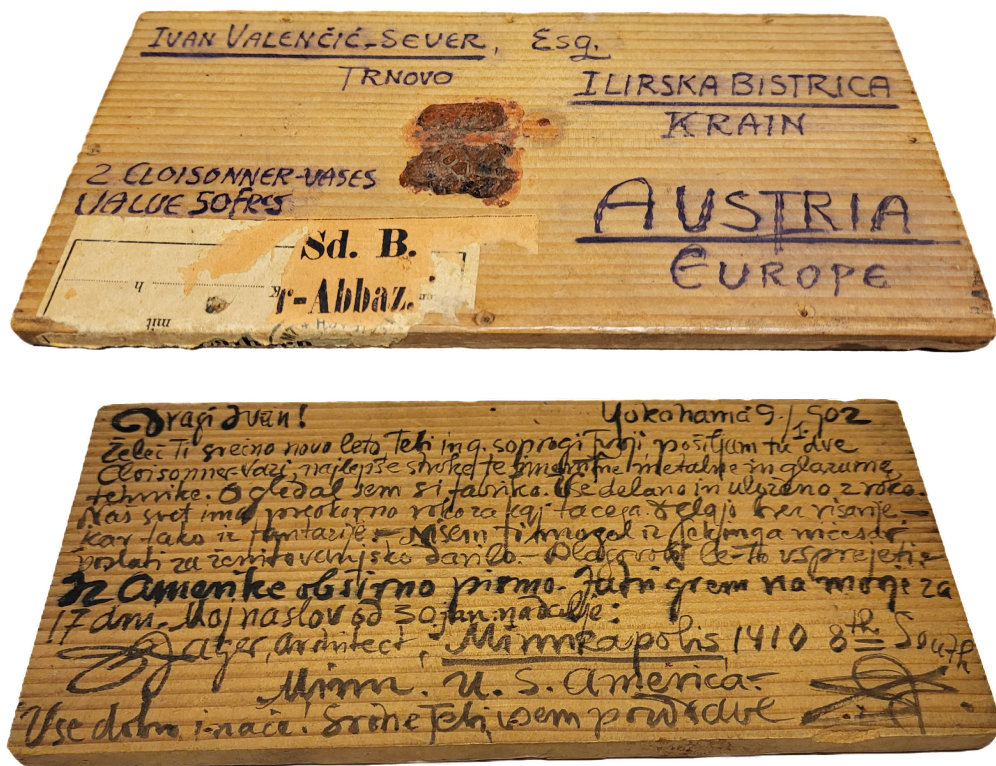 IVAN VALENČIČ-SEVER, Esq.
TRNOVO
ILIRSKA BISTRICA
KRAIN
2 CLOISONNER-VASES
VALUE 50 frcs
AUSTRIA
EUROPE
Sd. B.
-Abbaz.
h
mit
Dragi Ivan! Yokohama 9./1 902
Želeč Ti srečno novo leto Tebi in g. soprogi Tvoji pošiljam tu dve
Cloisonner-vazi, najlepše stroke te metalne in glazurne
tehnike. Ogledal sem si fabriko. Vse delano in vloženo z roko.
Naš svet ima preokorno roko za kaj tacega delajo brez risanje -
kar tako iz fantazije. - Nisem Ti mogel iz Pekinga ničesar
poslati za ženitovanjsko darilo. - Blagovoli le-to vsprejeti.
Iz Amerike obširno pismo. Jutri grem na morje za
17 dni. Moj naslov od 30 jan. nadalje:
Jager, Architect, Minneapolis 1410 8th South
Minn. U. S. America -
Vse dobro inače! Srčne Tebi, vsem pozdrave